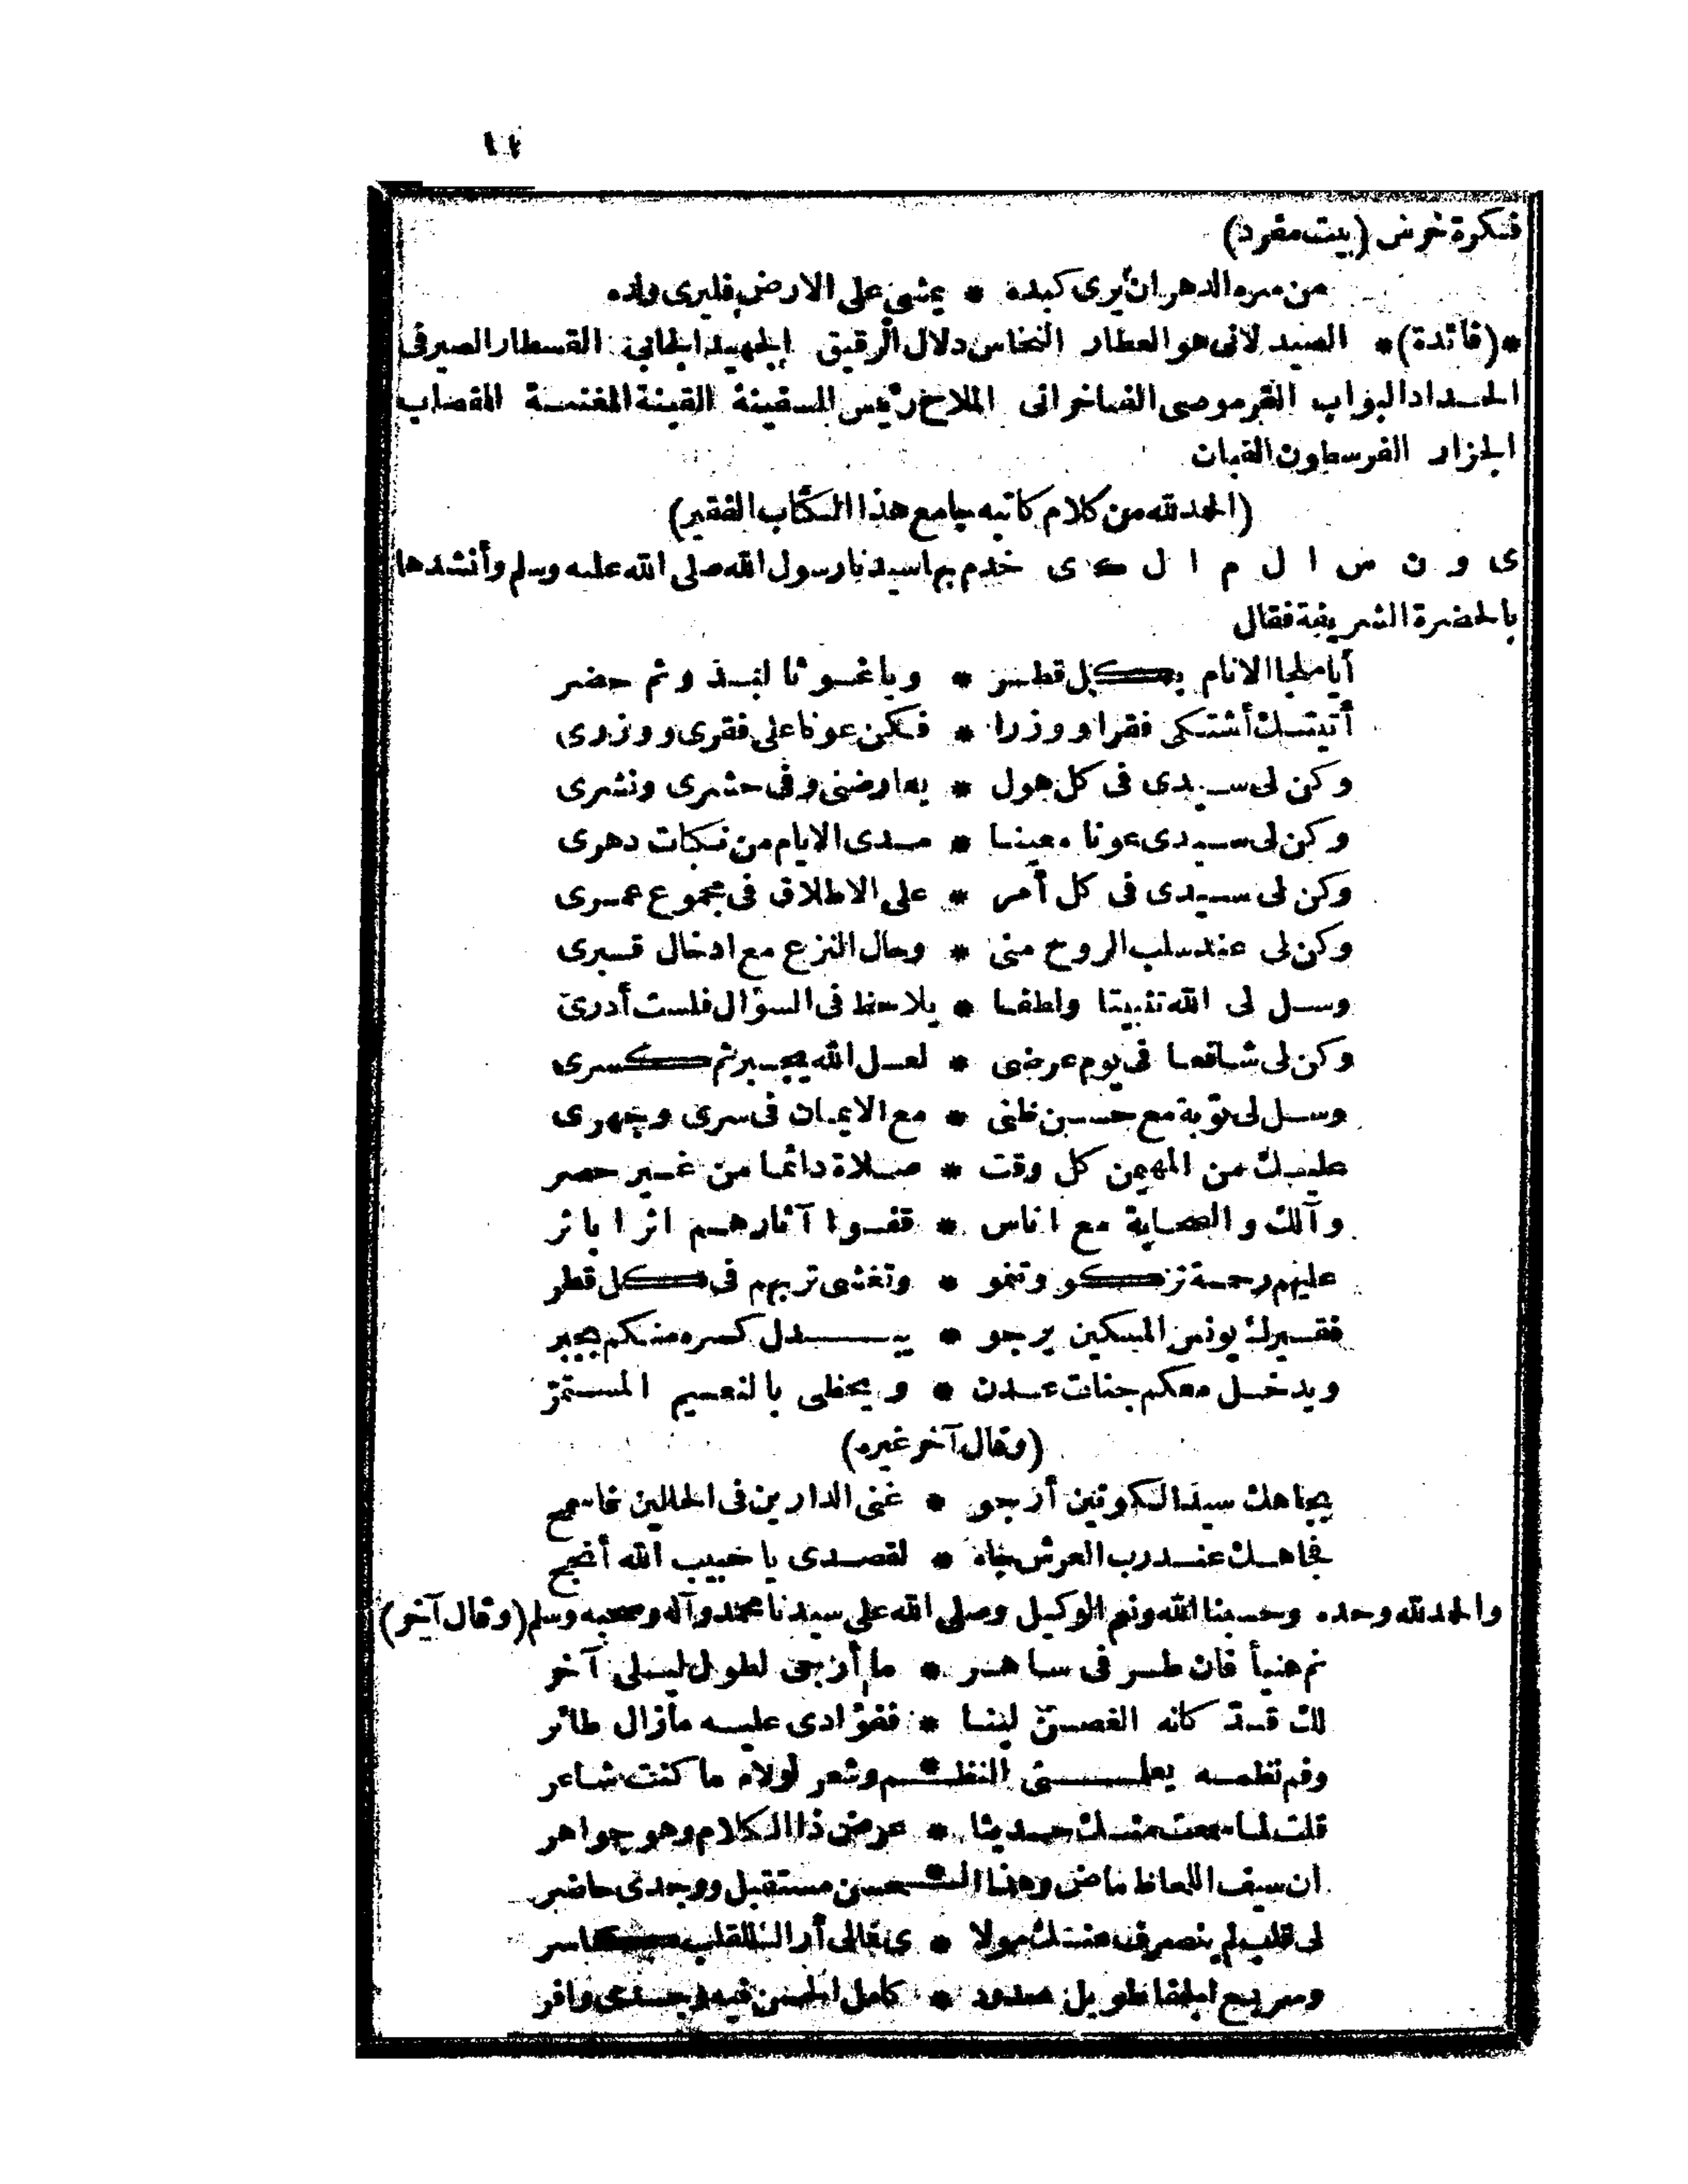 فكرة خرس (بيت مفرد)
من سره الدهر ان يرى كبده * يمشى على الارض فليرى ولده
*(فائدة)* الصيدلانى هو العطار النخاس دلال الرقيق الجهبذ الجابى القسطار الصيرفى
الحداد البواب القرموصى الفاخرانى الملاح رئيس السفينة القينة المغنية القصاب
الجزار القرسطون القبان
(الحمد لله من كلام كاتبه جامع هذا الكتاب الفقير)
ى و ن س ا ل م ا ل ك ى خدم بها سيدنا رسول الله صلى الله عليه وسلم وأنشدها
بالحضرة الشريفة فقال
أيا ملجا الانام بكل قطر * وياغوثا لنبذ وثم حضر
أتيتك أشتكى فقرا ووزرا * فكن عونا على فقرى ووزرى
وكن لى سيدى فى كل هول * يعارضنى وفى حشرى ونشرى
وكن لى سيدى عونا معينا * مدى الايام من نكبات دهرى
وكن لى سيدى فى كل أمر * على الاطلاق فى مجموع عمرى
وكن لى عند سلب الروح منى * وحال النزع مع ادخال قبرى
وسل لى الله تثبيتا ولطفا * يلاحظ فى السؤال فلست أدرى
وكن لى شافعا فى يوم عرضى * لعل الله يجبر ثم كسرى
وسل لى توبة مع حسن ظنى * مع الايمان فى سرى وجهرى
عليك من المهيمن كل وقت * صلاة دائما من غير حصر
وآلك والصحابة مع اناس * قفوا آثارهم اثرا باثر
عليهم رحمة تزكو وتنمو * وتغشى تربهم فى كل قطر
فقيرك يونس المسكين يرجو * يبدل كسره منكم بجبر
ويدخل معكم جنات عدن * ويحظى بالنعيم المستمر
(وقال آخر غيره)
بجاهك سيد الكونين أرجو * غنى الدارين فى الحالين فاسمح
فجاهك عند رب العرش جاه * لقصدى يا حبيب الله أنجح
والحمد لله وحده وحسبنا الله ونعم الوكيل وصلى الله على سيدنا محمد وآله وصحبه وسلم (وقال آخر)
نم هنيأ فان طرفى ساهر * ما أرجى لطول ليلى آخر
لك قد كانه الغصن لينا * ففؤادى عليه مازال طائر
وفم نظمه يعلمنى النظـ * ـم وشعر لولاه ما كنت شاعر
قلت لما سمعت منك حديثا * عرض ذا الكلام وهو جواهر
ان سيف اللحاظ ماض وهذا الـ * ـحسن مستقبل ووجدى حاضر
لى قلب لم ينصرف عنك مولا * ى فمالى أراك للقلب كاسر
وسريع الجفا طويل صدود * كامل الحسن فيه وجدى وافر